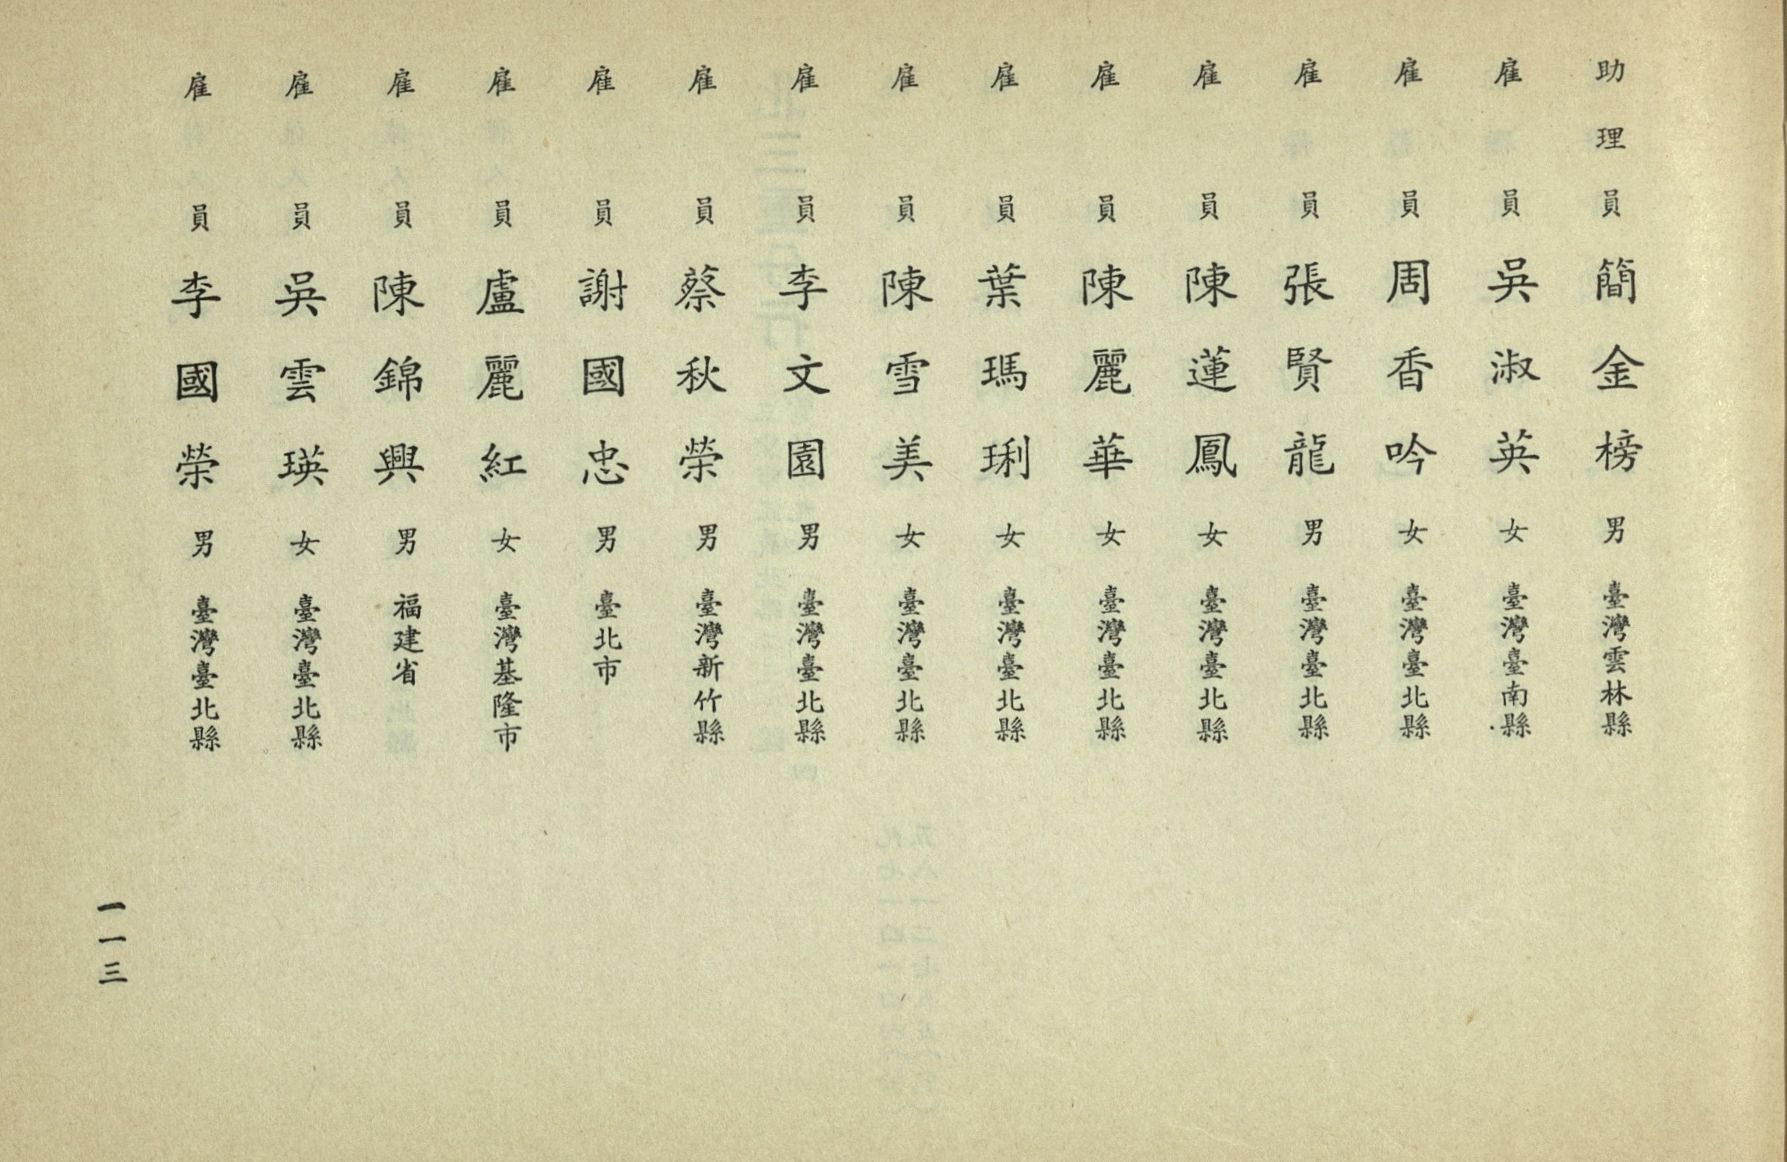 助理員簡金榜男臺灣雲林縣
雇員吳淑英女臺灣臺南縣
雇員周香吟女臺灣臺北縣
雇員張賢龍男臺灣臺北縣
雇員陳蓮鳳女臺灣臺北縣
雇員陳麗華女臺灣臺北縣
雇員葉瑪琍女臺灣臺北縣
雇員陳雪美女臺灣臺北縣
雇員李文園男臺灣臺北縣
雇員蔡秋榮男臺灣新竹縣
雇員謝國忠男臺北市
雇員盧麗紅女臺灣基隆市
雇員陳錦興男福建省
雇員吳雲瑛女臺灣臺北縣
雇員李國榮男臺灣臺北縣
一一三